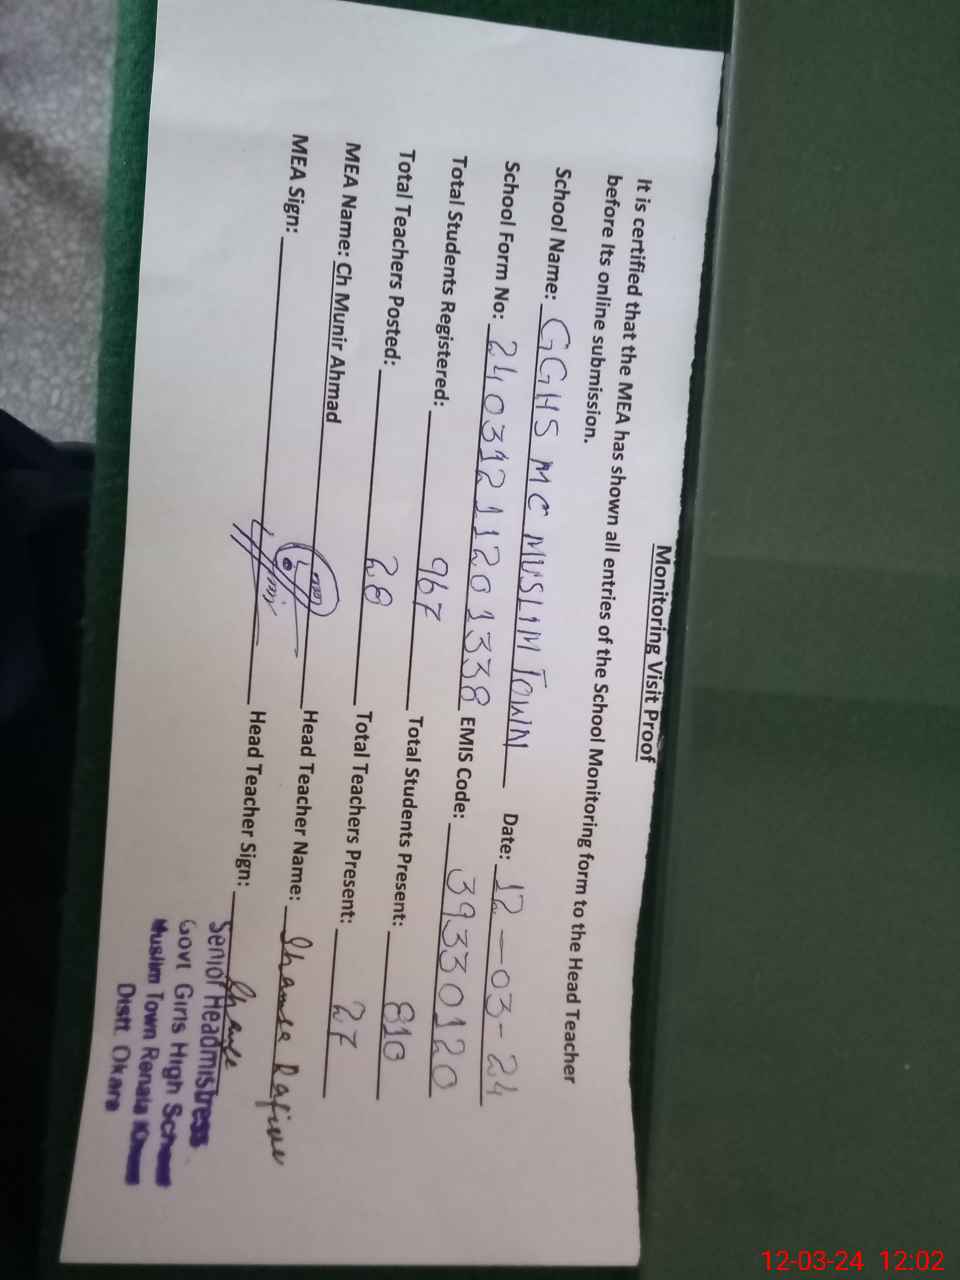 Monitoring Visit Proof
It is certified that the MEA has shown all entries of the School Monitoring form to the Head Teacher
before its online submission.
School Name: GGHS MC MUSLIM TOWN Date: 12-03-24
School Form No: 240312 1120 1338 EMIS Code: 39330120
Total Students Registered: 967 Total Students Present: 810
Total Teachers Posted: 28 Total Teachers Present: 27
MEA Name: Ch Munir Ahmad Head Teacher Name: Shamsa Rafique
MEA Sign: Head Teacher Sign:
Senior Headmistress
Govt. Girls High School
Muslim Town Renala Khurd
Distt. Okara
12-03-24 12:02